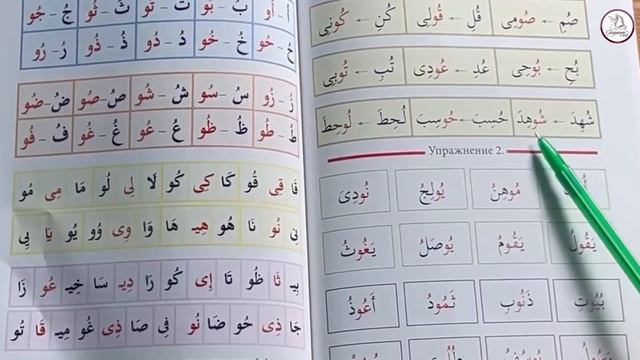 أُ - أُو بُ - بُو تُ - تُو ثُ - ثُو جُ - جُو
حُ - حُو خُ - خُو دُ - دُو ذُ - ذُو رُ - رُو
زُ - زُو سُ - سُو شُ - شُو صُ - صُو ضُ - ضُو
طُ - طُو ظُ - ظُو عُ - عُو غُ - غُو فُ - فُو
قَا قِي قُو كَا كِي كُو لَا لِي لُو مَا مِي مُو
نِي نُو نَا هُو هِيـ هَا وَا وِي وُو يُو يَا يِي
بِيـ ثَا ظُو تَا إِي كُو رَا دِيـ سَا خِيـ عُو زَا
جَا ذِي حُو ضَا نُو فِي صَا ذِي غُو مِيـ قَا تُو
صُمِ ← صُومِى قُلِ ← قُولِى كُنِ ← كُونِى
بُحِ ← بُوحِى عُدِ ← عُودِى تُبِ ← تُوبِى
شُهِدَ ← شُوهِدَ حُسِبَ ← حُوسِبَ لُحِظَ ← لُوحِظَ
Упражнение 2.
مُوهِنُ يُولِجُ نُودِىَ
يَقُولُ يَقُومُ يُوصَلُ يَغُوثُ
بُيُوتِ ذَنُوبِ ثَمُودُ أَعُوذُ